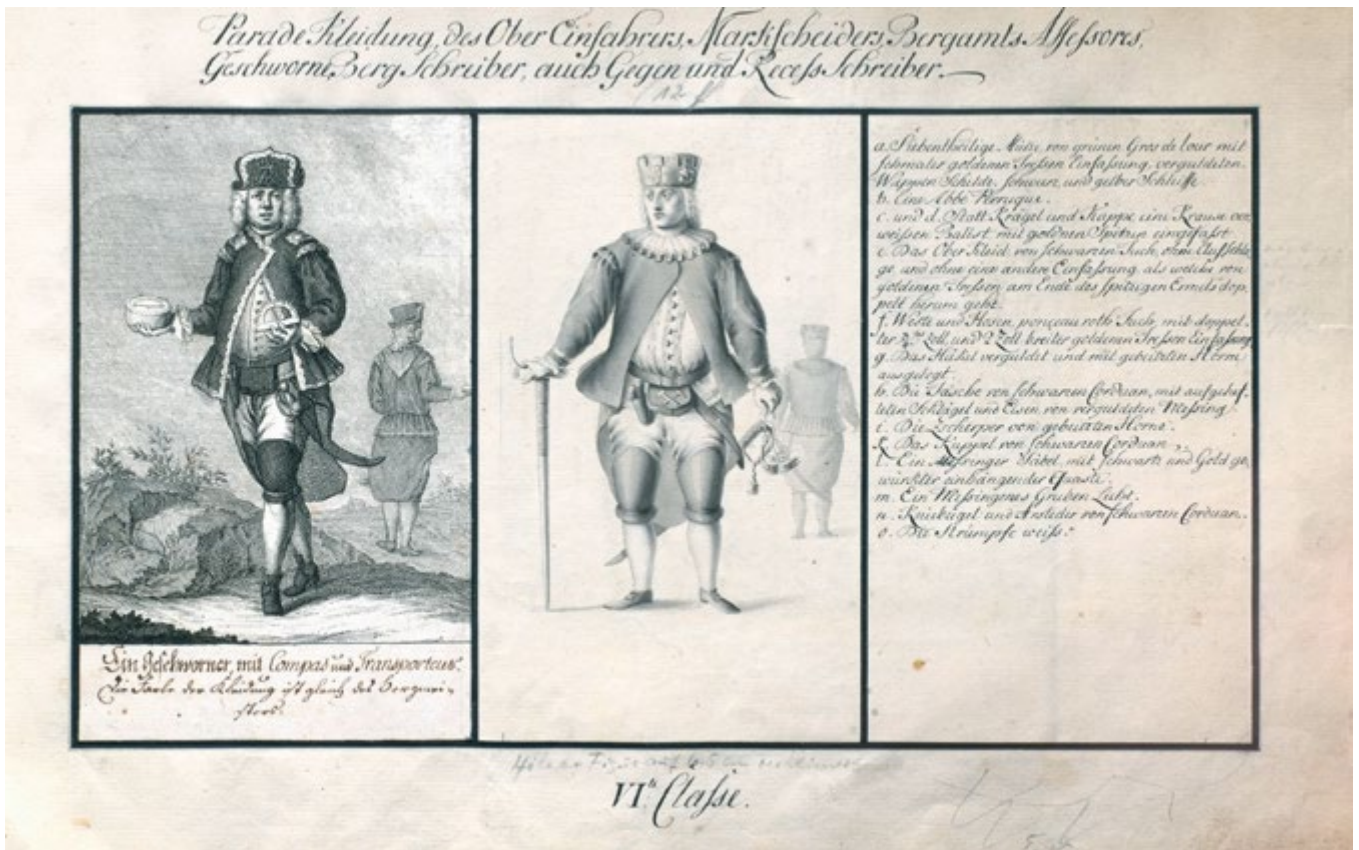 Parade Kleidung, des Ober Einfahrers, Markscheiders, Bergamts Assessores,
Geschworne, Berg Schreiber, auch Gegen und Recess Schreiber.
Ein Geschworner, mit Compas und Transporteur.
Die Farbe der Kleidung ist gleich des Bergmei-
sters.
a. Siebentheilige Mütze von grünen Gros de tour mit
schmaler goldenen Tressen Einfassung, verguldeten
Wappen Schilde, schwarz und gelber Schleiffe.
b. Eine Abbé Perruque.
c. und d. Statt Krägel und Kappe eine Krause von
weissen Batist, mit goldnen Spitzen eingefasst.
e. Das Ober Kleid von schwarzen Tuch, ohne Aufschlä-
ge und ohne eine andere Einfassung, als welche von
goldenen Tressen am Ende des spitzigen Ermels dop-
pelt herum geht.
f. Weste und Hosen, ponçeau roth Tuch, mit doppel-
ter Zoll, und 2 Zoll breiter goldenen Tressen Einfassung
g. Das Häkel verguldet und mit gebeitzten Horn
ausgelegt.
h. Die Tasche von schwarzen Corduan, mit aufgehef-
teten Schlägel und Eisen von verguldeten Messing.
i. Die Zscherper von gebeitzten Horne.
k. Das Kuppel von schwarzen Corduan.
l. Ein Messinger Säbel, mit schwartz und Gold ge-
würkter einhangender Quaste.
m. Ein Messingenes Gruben Licht.
n. Kniebügel und Arsleder von schwarzen Corduan.
o. Die Strümpfe weiss.
VIte Classe.